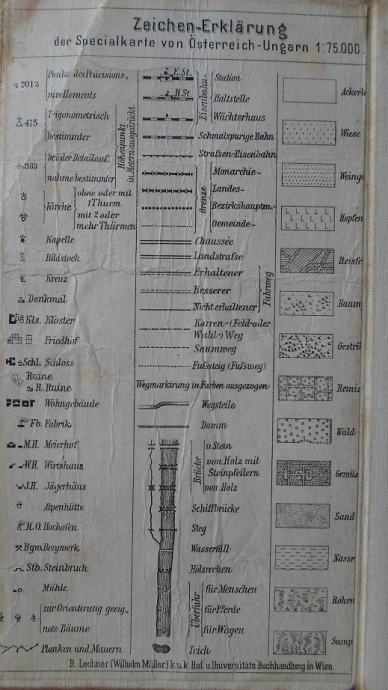 Zeichen-Erklärung
der Specialkarte von Österreich-Ungarn 1:75.000.
Punkt des Präcisions-
nivellements
Trigonometrisch
bestimmter
bei der Detailauf-
nahme bestimmter
Höhenpunkt
in Metern ausgedrückt
Kirche
ohne oder mit
1 Thurm
mit 2 oder
mehr Thürmen
Kapelle
Bildstock
Kreuz
Denkmal
Kls. Kloster
Friedhof
Schl. Schloss
Ruine
R. Ruine
Wohngebäude
Fb. Fabrik
M.H. Meierhof
W.H. Wirtshaus
J.H. Jägerhaus
Alpenhütte
H.O. Hochofen
Bgm. Bergwerk
Stb. Steinbruch
Mühle
zur Orientirung geeig-
nete Bäume
Planken und Mauern
E.St.
H.St.
Eisenbahn-
Station
Haltstelle
Wächterhaus
Schmalspurige Bahn
Strafsen-Eisenbahn
Grenze
Monarchie-
Landes-
Bezirkshauptm.-
Gemeinde-
Chaussée
Landstrafse
Erhaltener
Besserer
Nicht erhaltener
Fahrweg
Karren-(Feld-oder
Wald-) Weg
Saumweg
Fufssteig (Fufsweg)
Wegmarkirung in Farben ausgezogen
Wegsteile
Damm
Brücke
v. Stein
von Holz mit
Steinpfeilern
von Holz
Schiffbrücke
Steg
Wasserfall
Holzrechen
Überfuhr
für Menschen
für Pferde
für Wagen
Teich
Ackerl
Wiese
Weing
Hopfen
Reisfe
Baum
Gestrü
Remis
Wald
Gemüs
Sand
Nasse
Rohrw
Sump
R. Lechner (Wilhelm Müller) k.u.k. Hof u. Universitäts Buchhandlung in Wien.